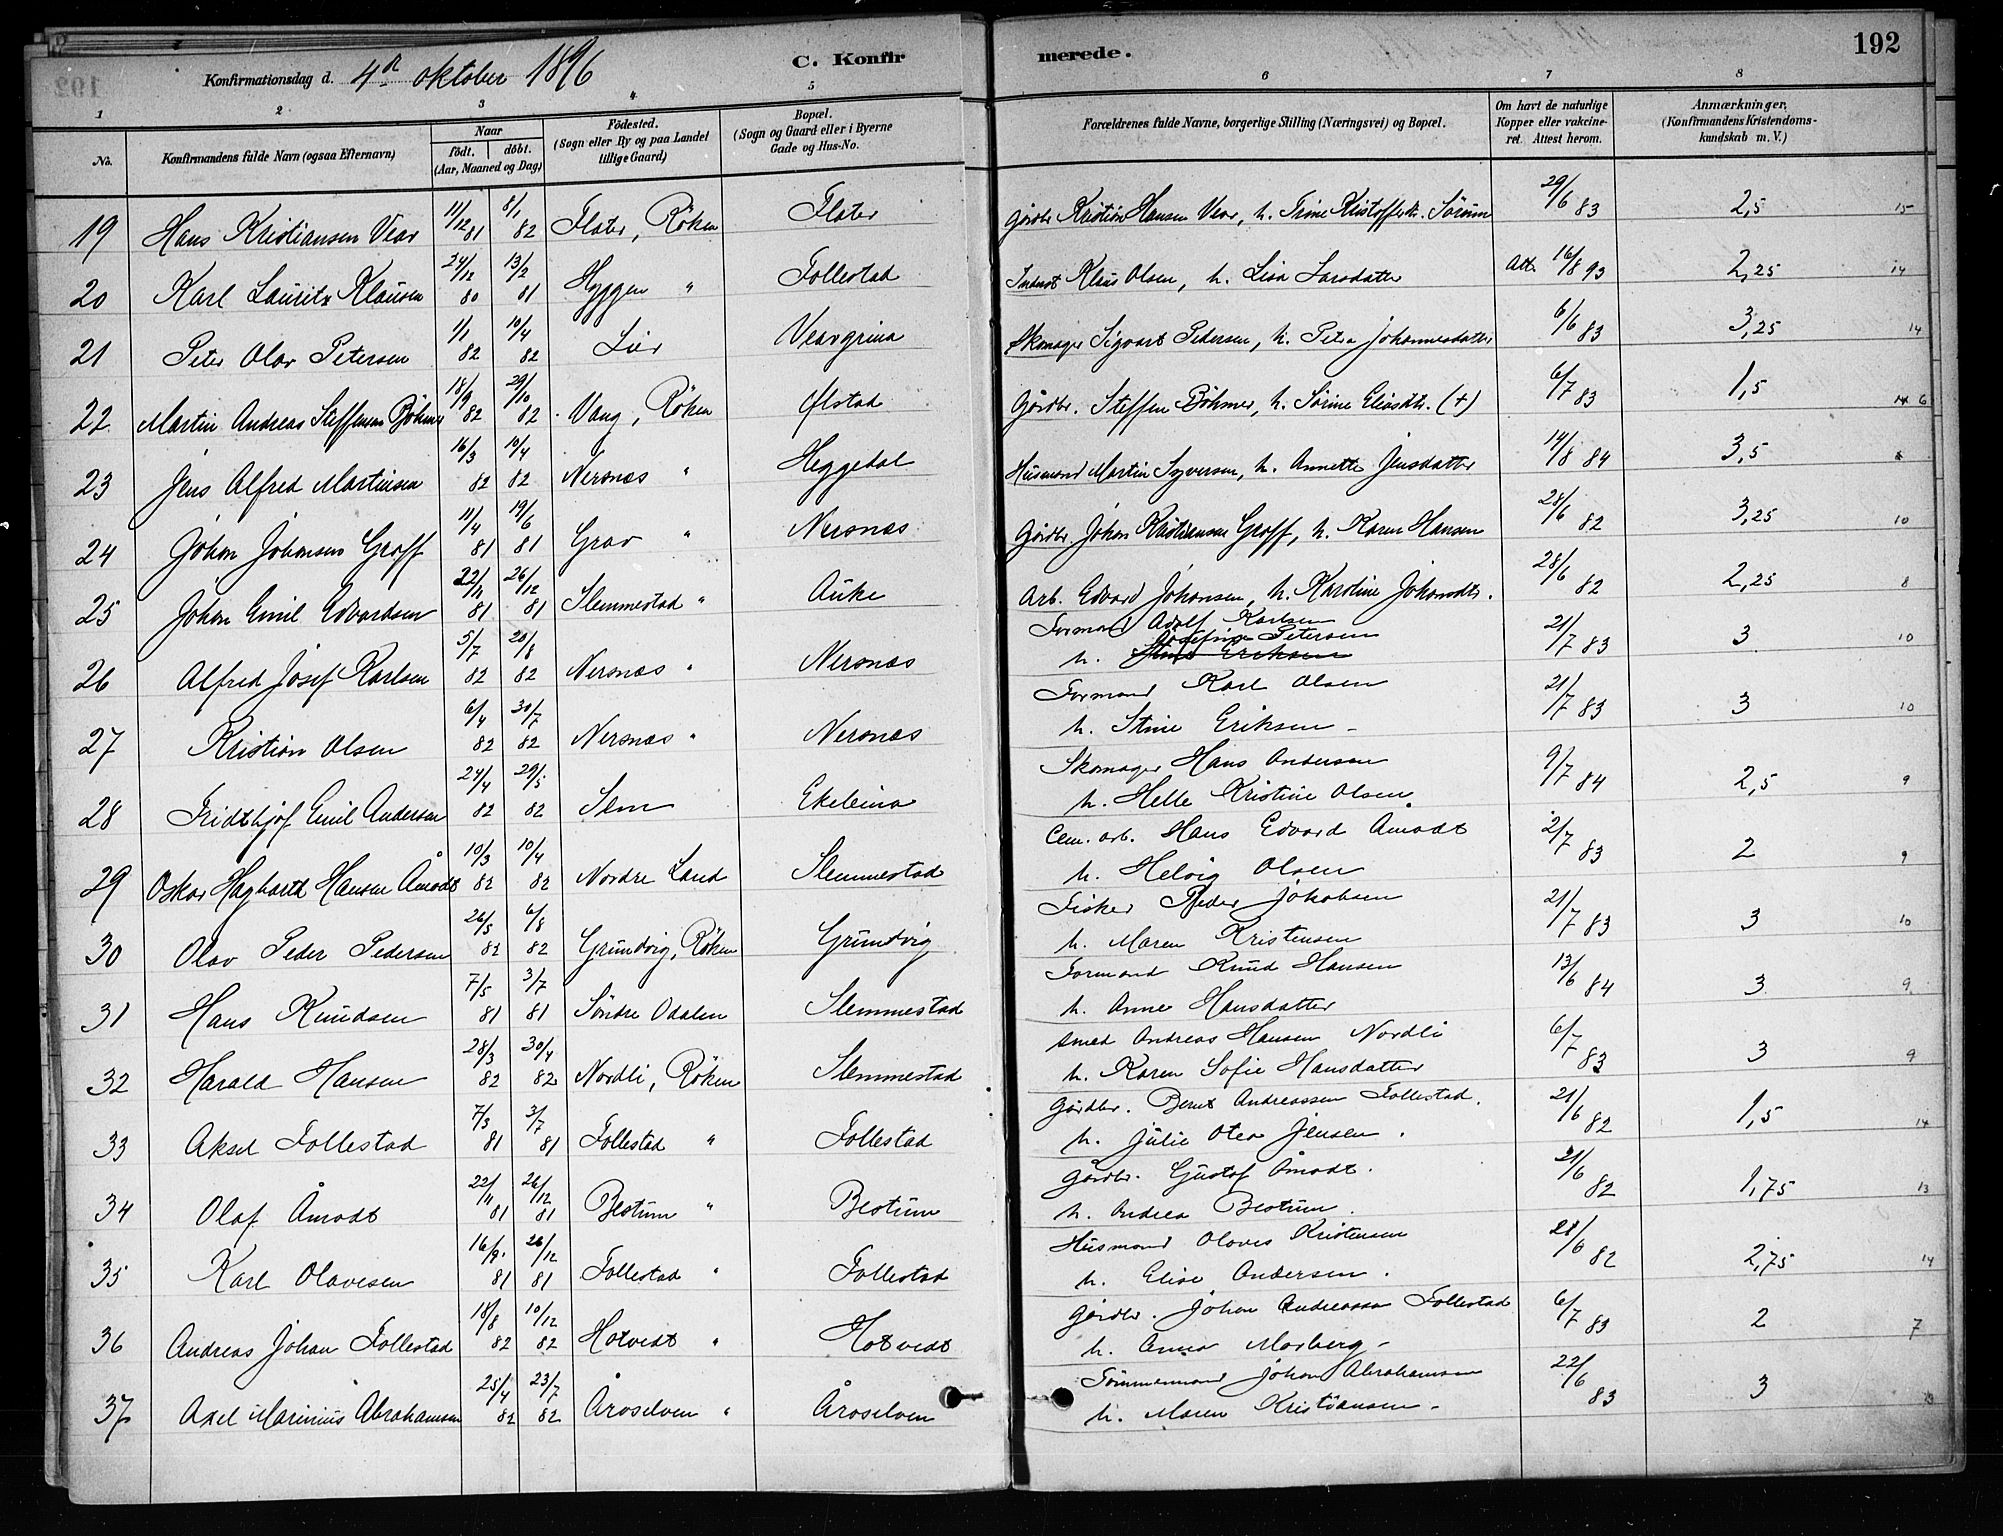 Konfirmationsdag d. 4de oktober 1896 C. Konfirmerede. 192
1 2 3 4 5 6 7 8
No. Konfirmandens fulde Navn (ogsaa Efternavn) Naar födt. döbt. (Aar, Maaned og Dag) Födested. (Sogn eller By og paa Landet tillige Gaard) Bopæl. (Sogn og Gaard eller i Byerne Gade og Hus-No. Forældrenes fulde Navne, borgerlige Stilling (Næringsvei) og Bopæl. Om havt de naturlige Kopper eller vakcineret. Attest herom. Anmærkninger, (Konfirmandens Kristendomskundskab m. V.)
19 Hans Kristiansen Vear 11/12 81 8/1 82 Flater, Röken Flater Gårdbr. Kristian Hansen Vear, h. Trine Kristoffersd. Sörum 29/6 83 2,5 15
20 Karl Lauritz Klausen 24/12 80 13/2 81 Hyggen " Follestad Inderst Klaus Olsen, h. Lisa Larsdatter Att. 16/8 93 2,25 14
21 Peter Olav Petersen 1/1 82 10/4 82 Lier Veargrina Skomager Sigvart Pedersen, h. Petra Johannesdatter 6/6 83 3,25 14
22 Martin Andreas Steffensen Böhmer 18/9 82 29/10 82 Vang, Röken Ølstad Gårdbr. Steffen Böhmer, h. Sörine Eliasdtr. (+) 6/7 83 1,5 6
23 Jens Alfred Martinsen 16/3 82 10/4 82 Nersnæs " Heggedal Husmand Martin Syversen, h. Annette Jensdatter 14/8 84 3,5
24 Johan Johansen Graff 11/4 81 19/6 81 Grav " Nersnæs Gårdbr. Johan Kristiansen Graff, h. Karen Hansen 28/6 82 3,25 10
25 Johan Emil Edvardsen 22/11 81 26/12 81 Slemmestad " Auke Arb. Edvard Johansen, h. Karoline Johansdtr. 28/6 82 2,25 8
26 Alfred Josef Karlsen 5/7 82 20/8 82 Nersnæs " Nersnæs Formand Adolf Karlsen h. Stine Eriksen Josefine Petersen 21/7 83 3 10
27 Kristian Olsen 6/4 82 30/7 82 Nersnæs " Nersnæs Formand Karl Olsen h. Stine Eriksen 21/7 83 3 10
28 Fridthjof Emil Andersen 24/4 82 29/5 82 Sem Ekeleina Skomager Hans Andersen h. Helle Kristine Olsen 9/7 84 2,5 9
29 Oskar Hagbarth Hansen Åmodt 10/3 82 10/4 82 Nordre Land Slemmestad Cem. arb. Hans Edvard Åmodt h. Helvig Olsen 2/7 83 2 9
30 Olav Peder Pedersen 26/5 82 6/8 82 Grundvig, Röken Grundvig Fisker Peder Jakobsen h. Maren Kristensen 21/7 83 3 10
31 Hans Knudsen 7/5 81 3/7 81 Söndre Odalen Slemmestad Formand Knud Hansen h. Anne Hansdatter 13/6 84 3 9
32 Harald Hansen 28/3 82 30/4 82 Nordli, Röken Slemmestad Smed Andreas Hansen Nordli h. Karen Sofie Hansdatter 6/7 83 3 9
33 Aksel Follestad 7/3 81 3/7 81 Follestad " Follestad Gårdbr. Bernt Andreassen Follestad. h. Julie Otea Jensen. 21/6 82 1,5 14
34 Olaf Åmodt 22/11 81 26/12 81 Bestum " Bestum Gårdbr. Gustaf Åmodt. h. Andrea Bestum. 21/6 82 1,75 13
35 Karl Olavesen 16/9 81 26/12 81 Follestad " Follestad Husmand Olaves Kristensen h. Elise Andersen. 28/6 82 2,75 14
36 Andreas Johan Follestad 18/8 82 10/12 82 Hotvedt " Hotvedt Gårdbr. Johan Andreassen Follestad h. Anna Morberg 6/7 83 2 7
37 Axel Marinius Abrahamsen 25/4 82 23/7 82 Åroselven " Åroselven Tömmermand Johan Abrahamsen h. Maren Kristiansen 22/6 83 3